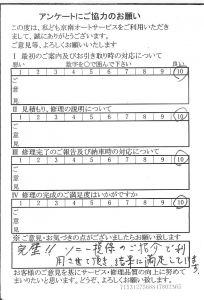 アンケートにご協力のお願い
この度は、私ども京南オートサービスをご利用いただき
まして、誠にありがとうございます。
ご意見等、よろしくお願いいたします
Ⅰ 最初のご案内及びお引き取り時の対応について
悪い 数字を○で囲んで下さい 良い
1 2 3 4 5 6 7 8 9 10
ご意見
Ⅱ 見積もり、修理の説明について
1 2 3 4 5 6 7 8 9 10
ご意見
Ⅲ 修理完了のご報告及び納車時の対応について
1 2 3 4 5 6 7 8 9 10
ご意見
Ⅳ 修理の完成のご満足度はいかがですか
1 2 3 4 5 6 7 8 9 10
※ご意見・お気づきの点がございましたらお願いします
完璧!! ソニー損保のご紹介で利
用させて頂き 結果に満足しています。
お客様のご意見を基にサービス・修理品質の向上に努めて
まいりたいと思います。どうぞ、よろしくお願い致します。